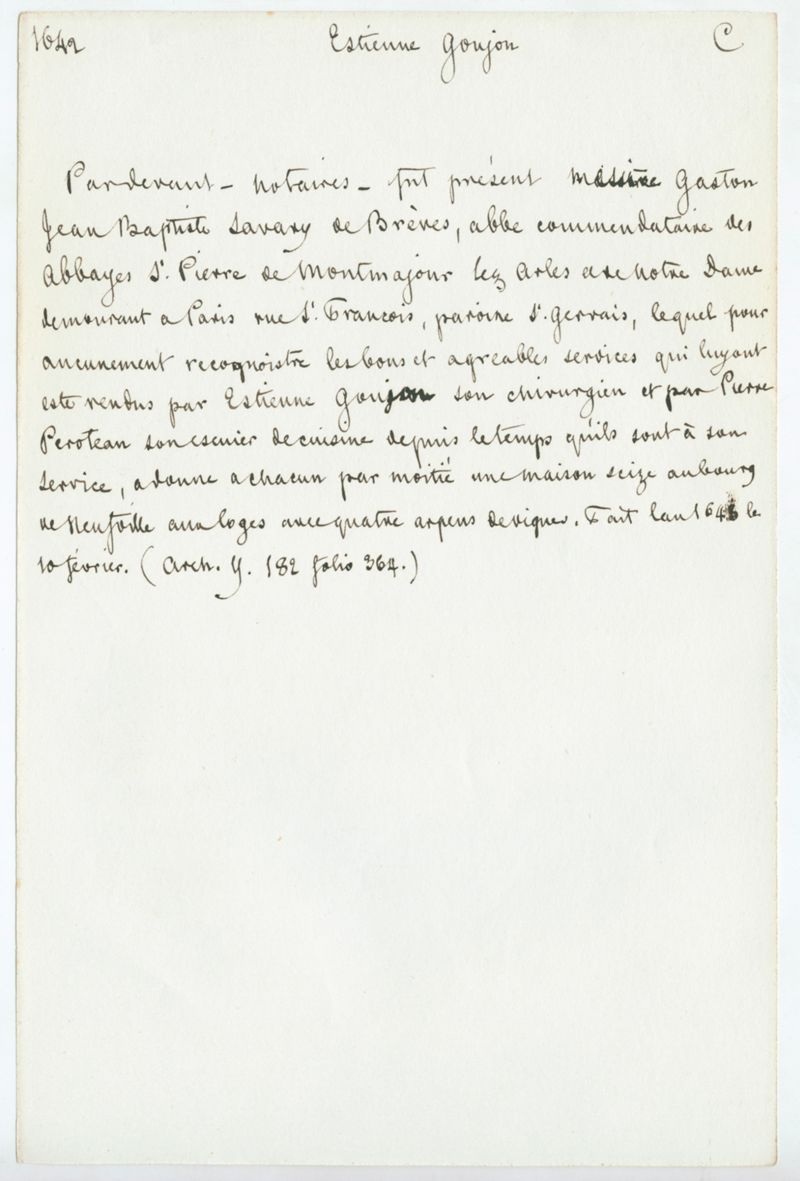 1642 Estienne Goujon C
Pardevant - notaires - fut présent Messire Gaston
Jean Baptiste Savary de Brèves, abbe commendataire des
Abbayes St. Pierre de Montmajour lez Arles et de Notre Dame
demourant a Paris rue St. François, paroisse St. Gervais, lequel pour
aucunement recognoistre les bons et agreables services qui luy ont
este rendus par Estienne Goujon son chirurgien et par Pierre
Peroteau son escuier de cuisine depuis le temps qu'ils sont à son
service, a donne a chacun par moitié une maison seize au bourg
de Neufville aux loges avec quatre arpens de vignes. Fait lan le
10 février. (Arch. Y. 182 folio 364.)